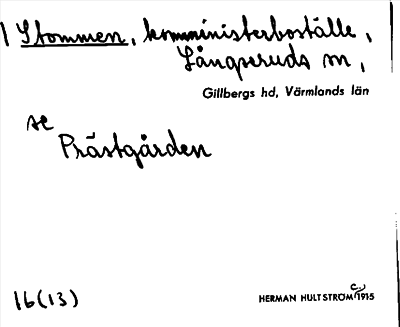 Stommen, komministerboställe,
Långseruds sn,
Gillbergs hd, Värmlands län
se
Prästgården
16(13)
HERMAN HULTSTRÖM 1915